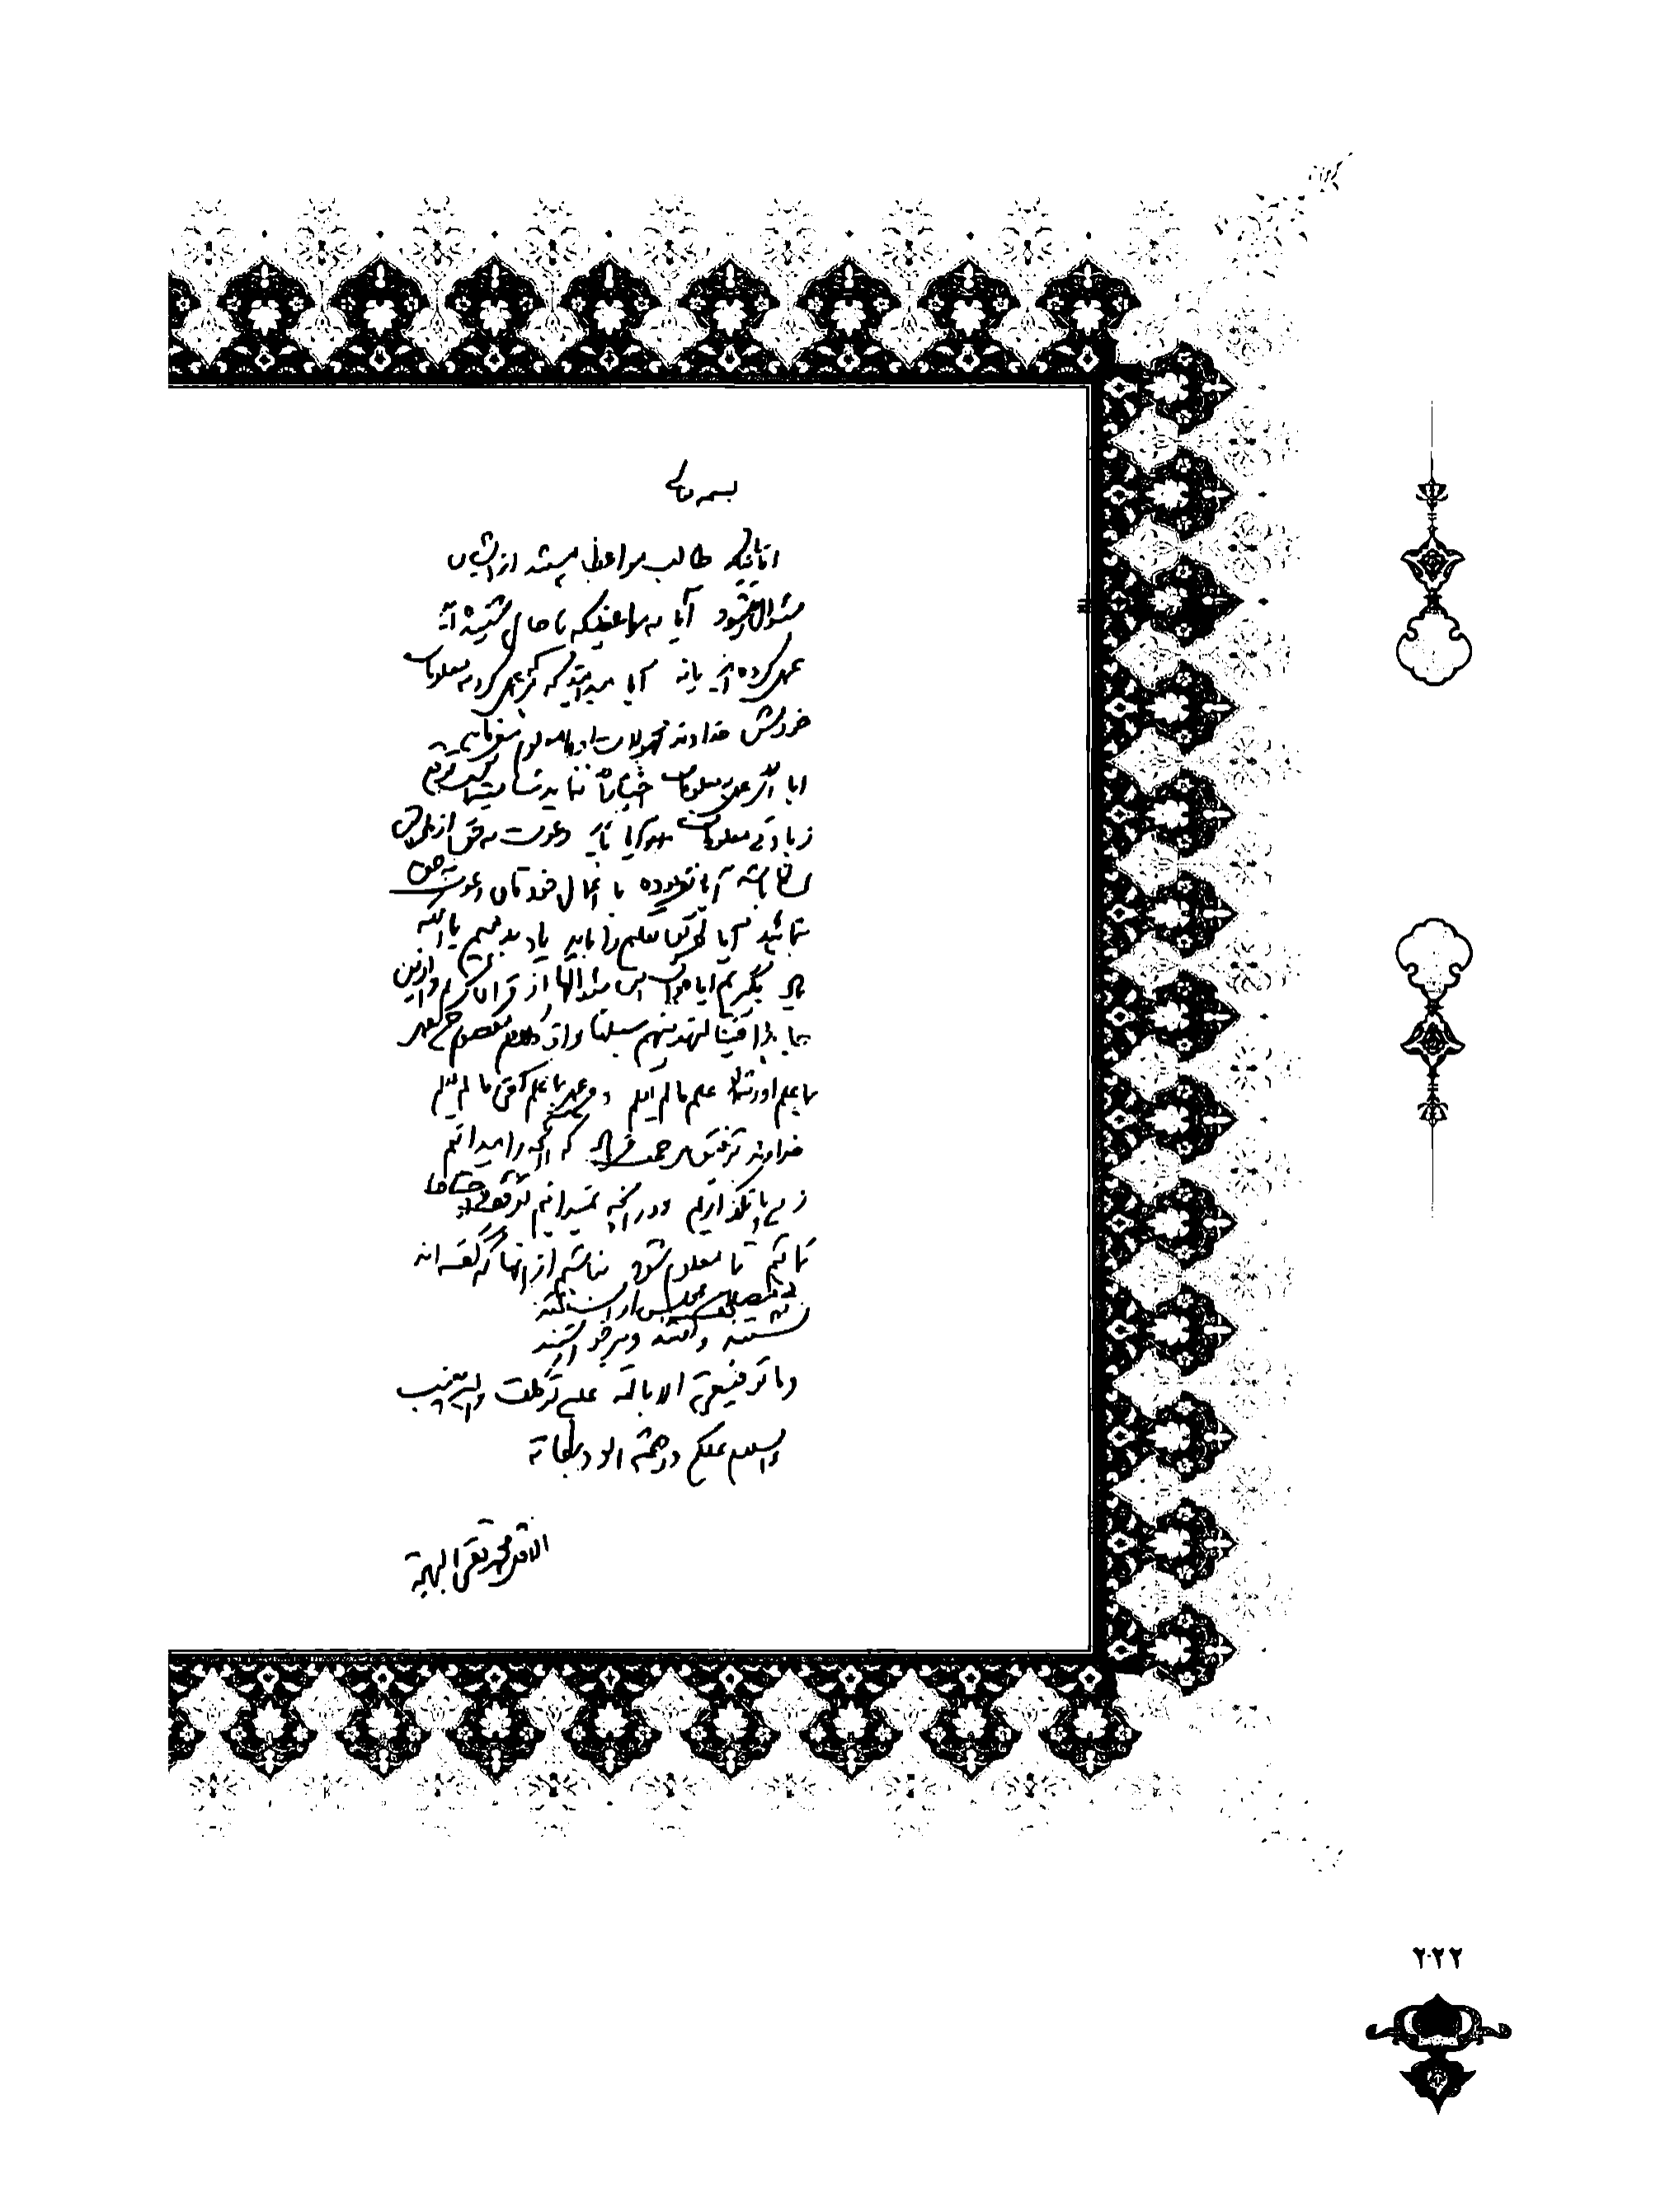 بسمه تعالی
آقایانیکه طالب مواعظ هستند از ایشان
سئوال میشود آیا به مواعظیکه تا حال شنیده اید
عمل کرده اید یا نه آیا میدانید که هر که عمل کرد به معلومات
خودش خداوند مجهولات او را معلوم میفرماید
آیا اگر عمل به معلومات اختیاراً ننماید شایسته است توقع
زیادتی معلومات آیا باید دعوت به حق از طریق
لسان باشد آیا نفرموده با اعمال خودتان دعوت به حق
بنمائید آیا طریق تعلیم را باید یاد بدهیم یا آنکه
یاد بگیریم آیا جواب این سئوالها از قرآن کریم والذین
جاهدوا فینا لنهدینهم سبلنا و از کلام معصوم من عمل
بما علم اورثه الله علم ما لم یعلم و من عمل بما علم کفی ما لم یعلم
خداوند توفیق مرحمت فرماید که آنچه را میدانیم
زیر پا نگذاریم و در آنچه نمیدانیم توقف و احتیاط
نمائیم تا معلوم شود نباشیم از آنها که گفته اند
پی مصلحت مجلس آراستند
نشستند و گفتند و برخواستند
وما توفیقی الا بالله علیه توکلت والیه انیب
والسلام علیکم ورحمة الله وبرکاته
الاقل محمد تقی البهجة
۲۰۲۲